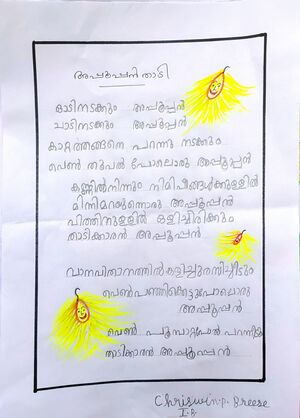 അപ്പൂപ്പൻ താടി
ഓടിനടക്കും അപ്പൂപ്പൻ
ചാടിനടക്കും അപ്പൂപ്പൻ
കാറ്റത്തങ്ങനെ പറന്നു നടക്കും
വെൺ തൂവൽ പോലൊരു അപ്പൂപ്പൻ
കണ്ണിൽനിന്നും നിമിഷങ്ങൾക്കുള്ളിൽ
മിന്നിമറയുന്നൊരു അപ്പൂപ്പൻ
വിത്തിനുള്ളിൽ ഒളിച്ചിരിക്കും
താടിക്കാരൻ അപ്പൂപ്പൻ
വാനവിതാനത്തിൽ
വെൺപഞ്ഞിക്കെട്ടുപോലൊരു
അപ്പൂപ്പൻ
വെൺ
താടിക്കാരൻ അപ്പൂപ്പൻ
Chriswin.p. Breese
I.B